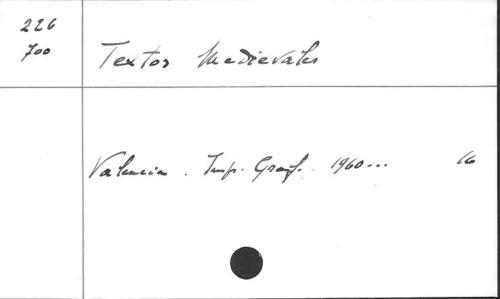 226
700
Textos Medievales
Valencia . Imp. Graf. . 1960... 16